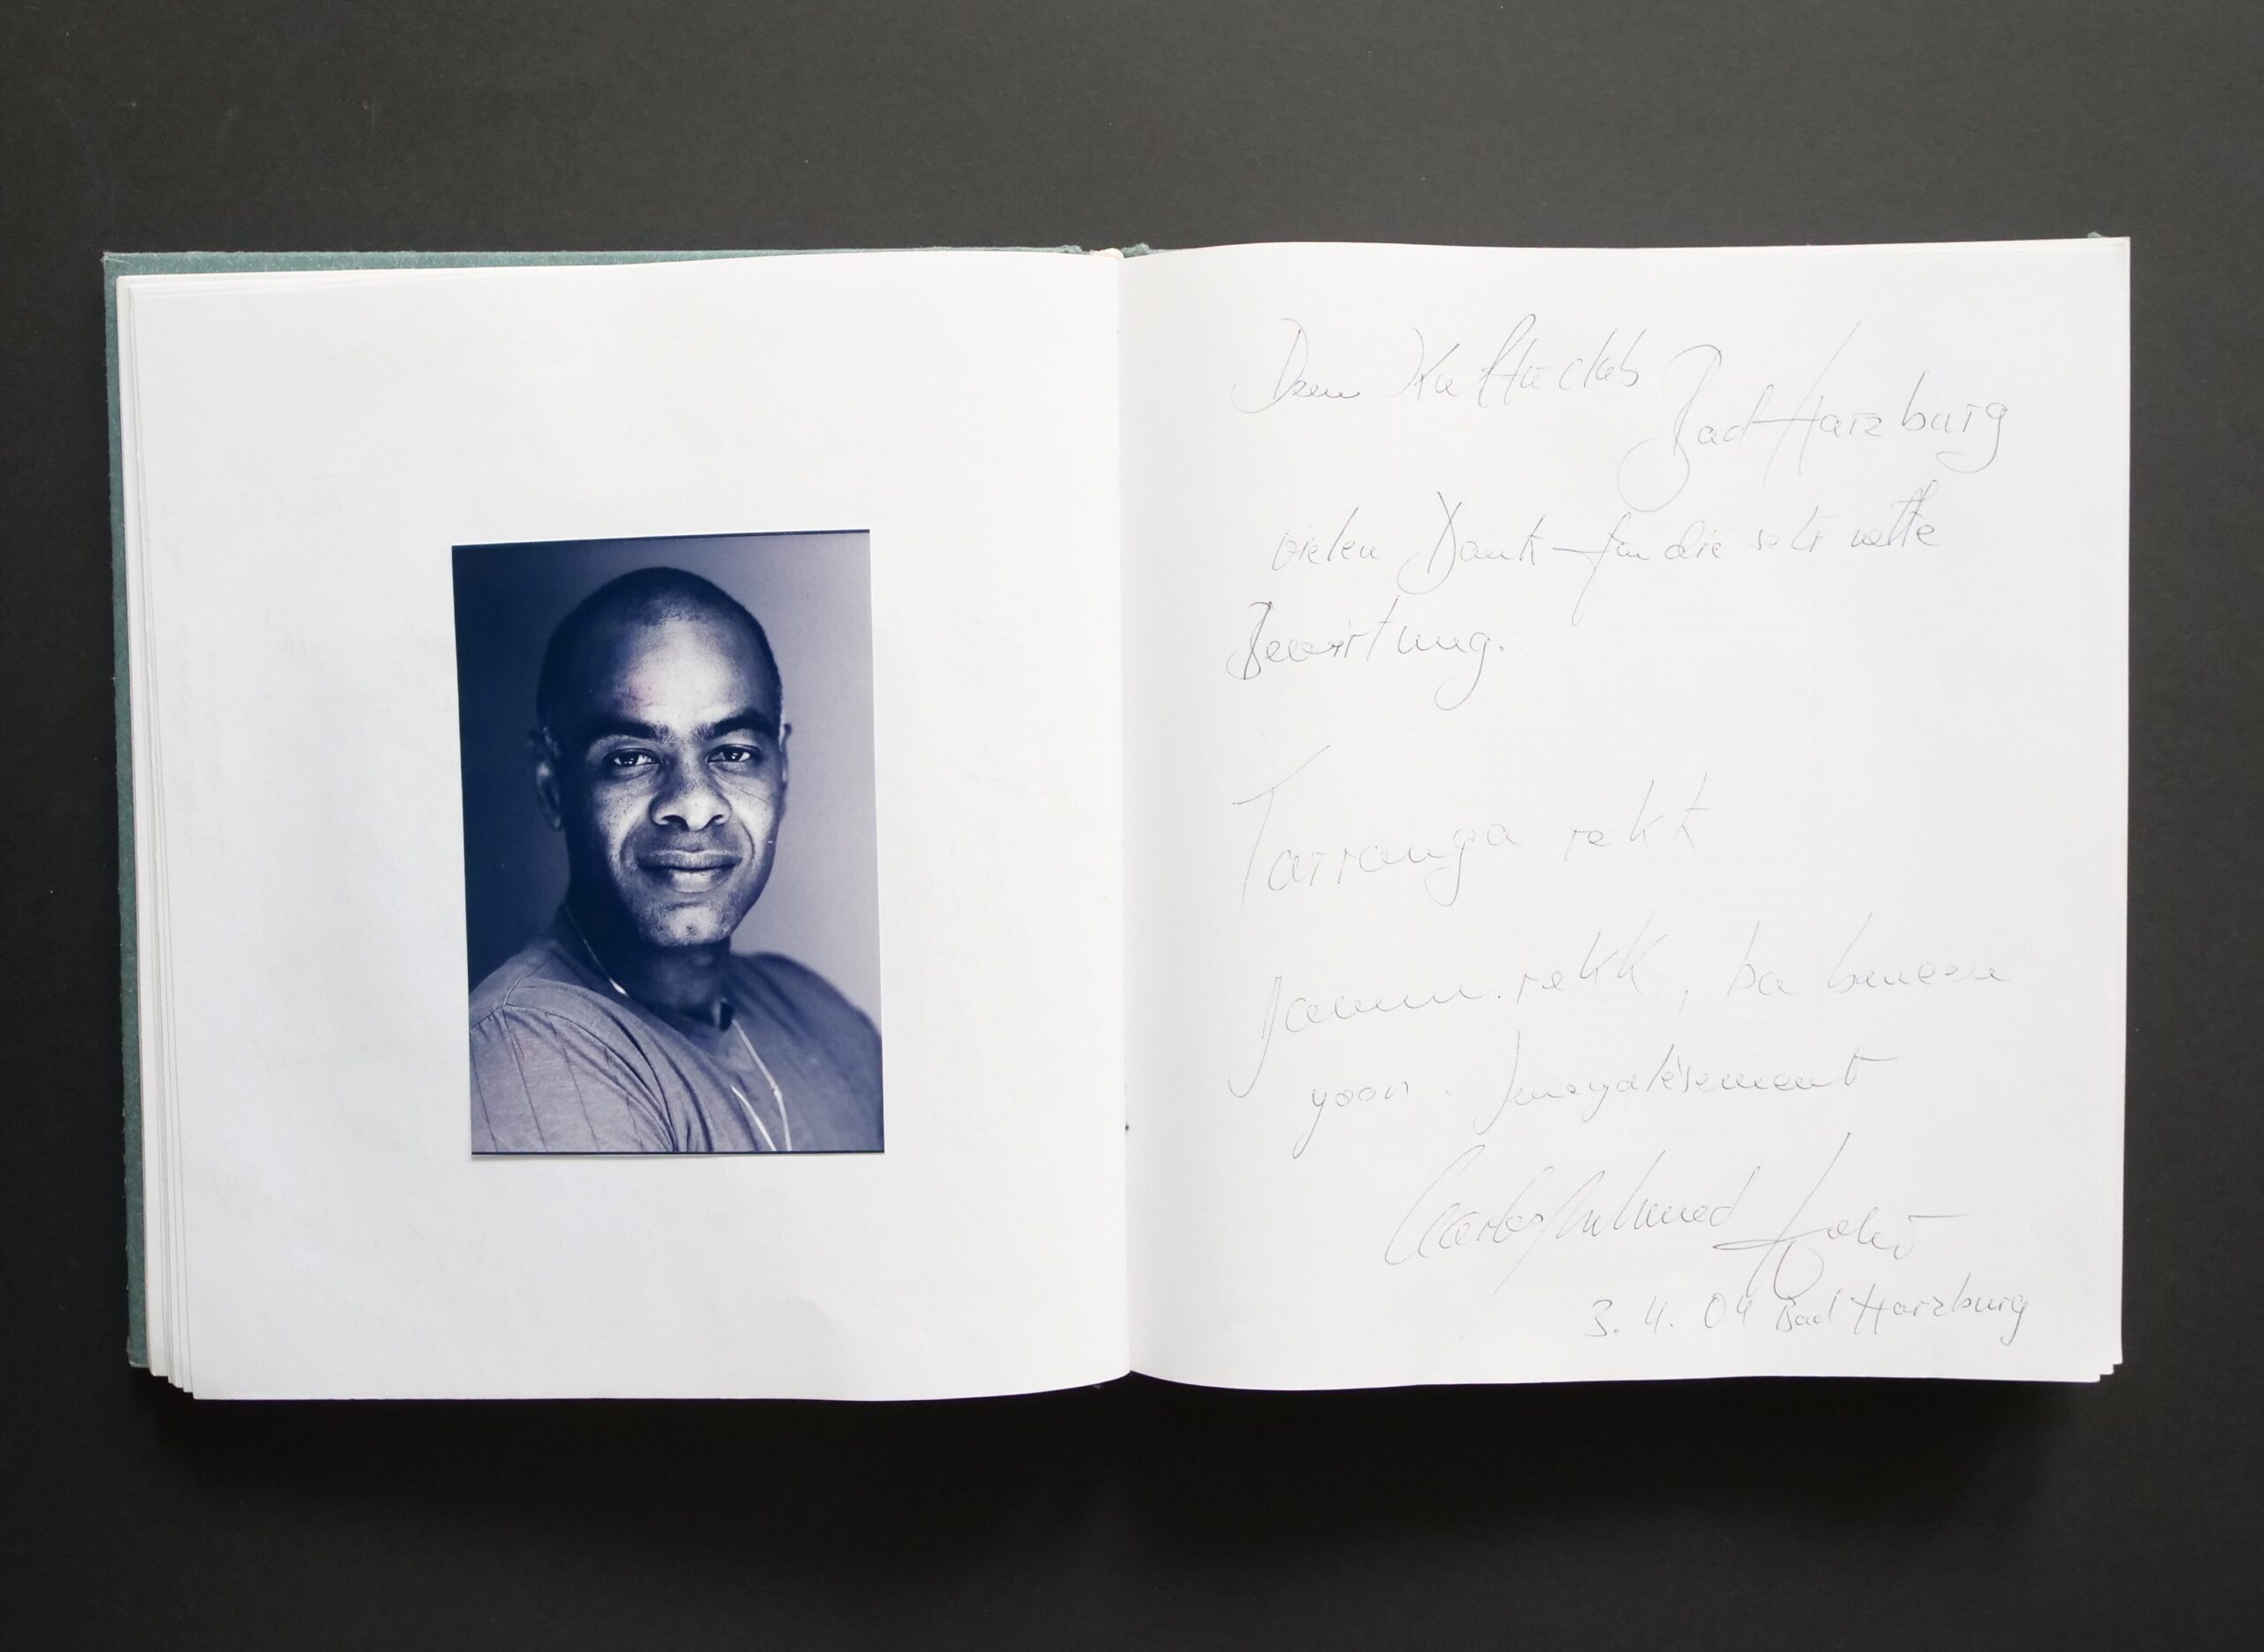 Dem Kulturclub
Bad Harzburg
vielen Dank für die sehr nette
Bewirtung.
Tarranga rekk
Jamm rekk, ba beneen
yoon.
3. 4. 04 Bad Harzburg